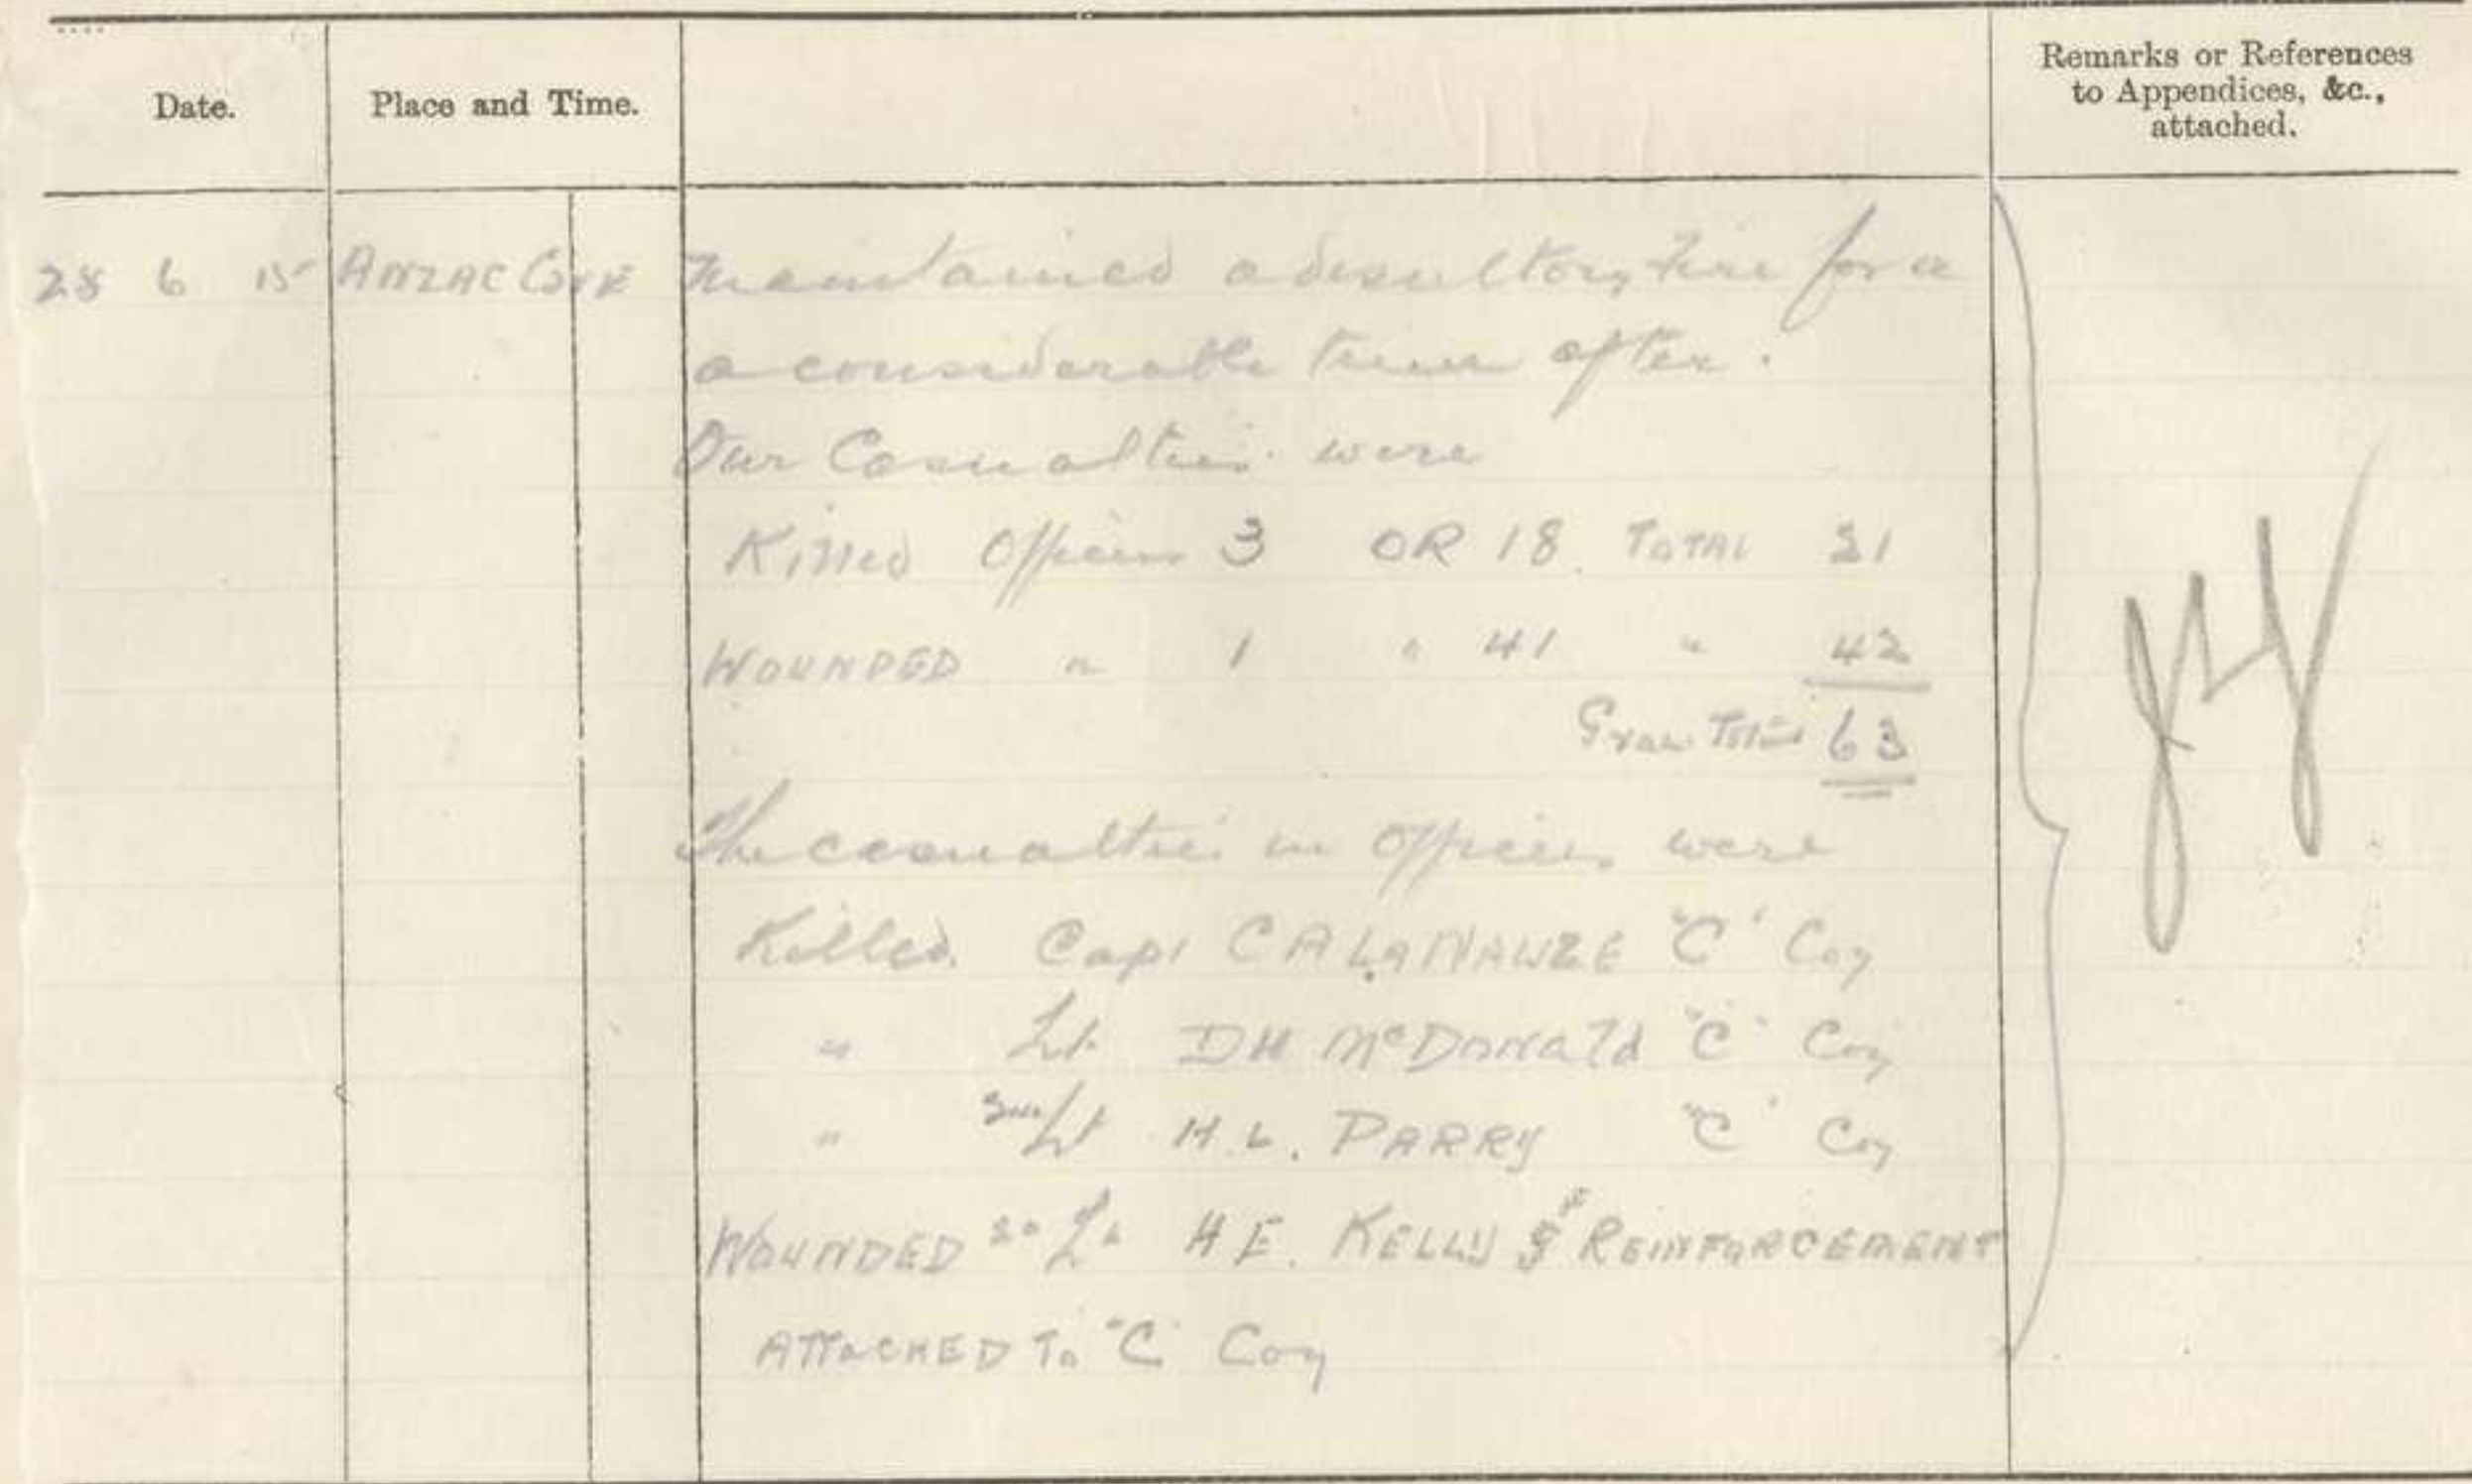 Date.
Place and Time.
Remarks or References
to Appendices, &c.,
attached.
28 6 15 ANZAC COVE Maintained a desultory fire for a
a considerable time after.
Our Casualties were
Killed Officers 3 OR 18. TOTAL 21
WOUNDED " 1 " 41 " 42
Grand Total 63
The casualties in Officers were
Killed. Capt C A LaNAUZE "C" Coy
" Lt DH McDonald "C" Coy
" 2nd/Lt H.L. PARRY "C" Coy
WOUNDED 2nd Lt H E. KELLY REINFORCEMENT
ATTACHED To "C" Coy